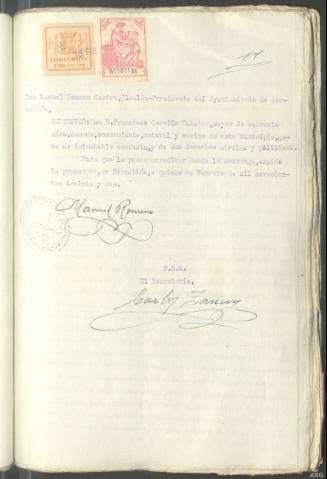 CORCUBION
17
Don Manuel Romero Castro, Alcalde-Presidente del Ayuntamiento de Cor-
cubión,
CERTIFICO: Que D. Francisco Carrillo, mayor de cuarenta
años, casado, comerciante, natural y vecino de este Municipio, go-
za de intachable conducta, y de sus derechos civiles y políticos.
Para que le pueda acreditar donde le convenga, expido
la presente, en Corcubión, a quince de Febrero de mil novecien-
tos treinta y dos.
Manuel Romero
P.S.M.
El Secretario,
Carlos
ARG